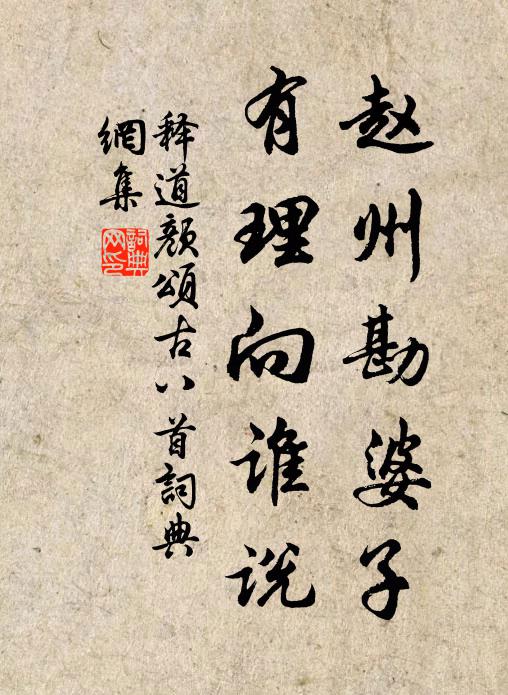 赵州勘婆子
有理向谁说
释道颜颂古八首詞典
網集
詞典網印